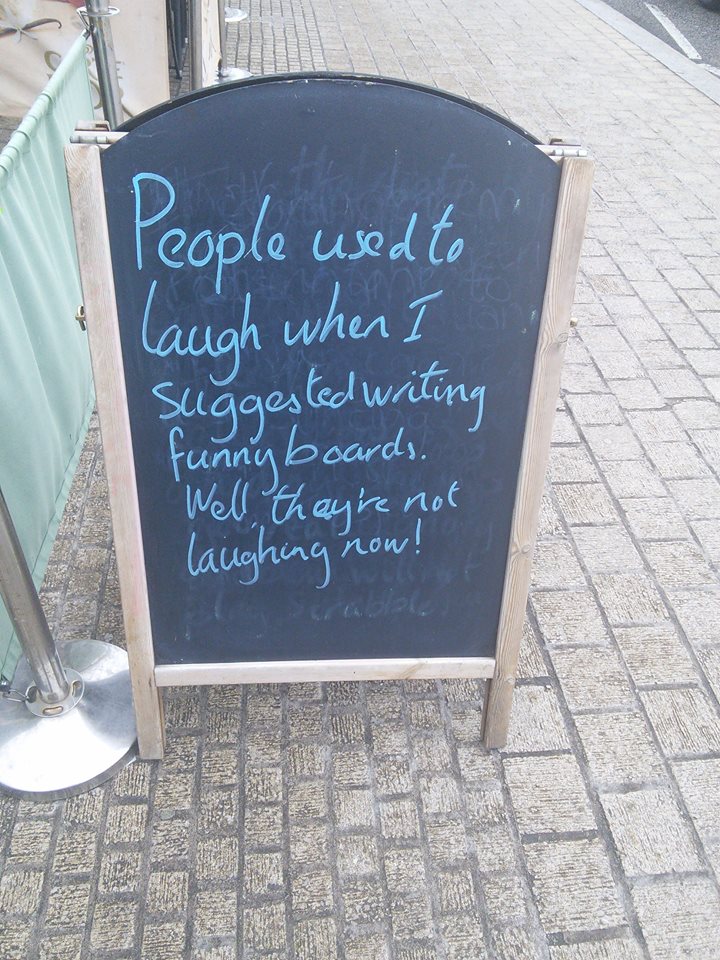 People used to
laugh when I
suggested writing
funny boards.
Well, they're not
laughing now!